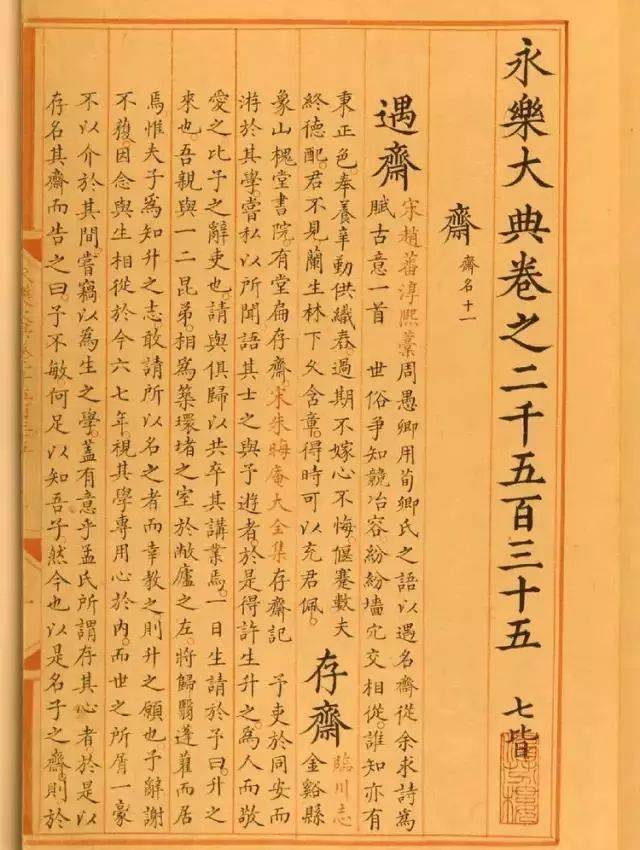 永樂大典卷之二千五百三十五 七皆
齋 齋名十一
遇齋 宋趙蕃淳熙藁周愚卿用荀卿氏之語以遇名齋從余求詩爲
賦古意一首 世俗爭知競冶容紛紛墻穴交相從誰知亦有
秉正色。奉養辛勤供織舂。過期不嫁心不悔。偃蹇數夫
終德配。君不見蘭生林下久含章。得時可以充君佩。
存齋 臨川志
金谿縣
象山槐堂書院。有堂扁存齋。宋朱晦庵大全集存齋記 予吏於同安而
游於其學。嘗私以所聞語其士之與予遊者。於是得許生升之。爲人而敬
愛之。比予之辭吏也。請與俱歸以共卒其講業焉。一日生請於予曰。升之
來也。吾親與一二昆弟。相爲築環堵之室於敝廬之左。將歸翳蓬藋而居
焉。惟夫子爲知升之志。敢請所以名之者而幸教之。則升之願也。予辭謝
不獲。因念與生相從於今六七年。視其學專用心於內。而世之所屑一豪
不以介於其間。嘗竊以爲生之學。蓋有意乎孟氏所謂存其心者。於是以
存名其齋而告之曰。予不敏何足以知吾子。然今也以是名子之齋。則於